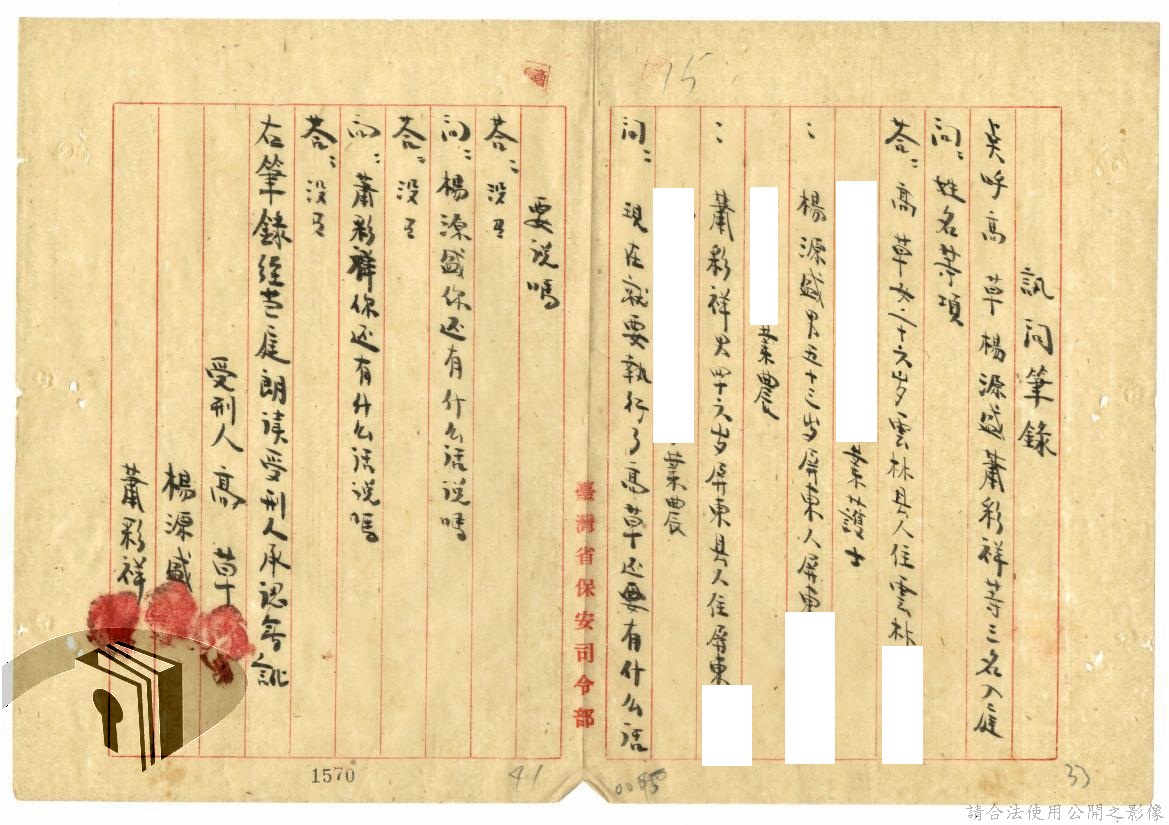 訊问筆錄
点呼高 草楊源盛蕭彩祥等三名入庭
问：姓名等項
答：高 草女二十六岁雲林县人住雲林
業護士
：楊源盛男五十三岁屏東人屏東
業農
：蕭彩祥男四十六岁屏東县人住屏東
業農
问：現在就要執行了高草还要有什么話
要说嗎
答：没有
问：楊源盛你还有什么話说嗎
答：没有
问：蕭彩祥你还有什么話说嗎
答：没有
右筆錄經当庭朗读受刑人承認無訛
受刑人 高 草
楊源盛
蕭彩祥
臺灣省保安司令部
15
33
41
1570
請合法使用公開之影像